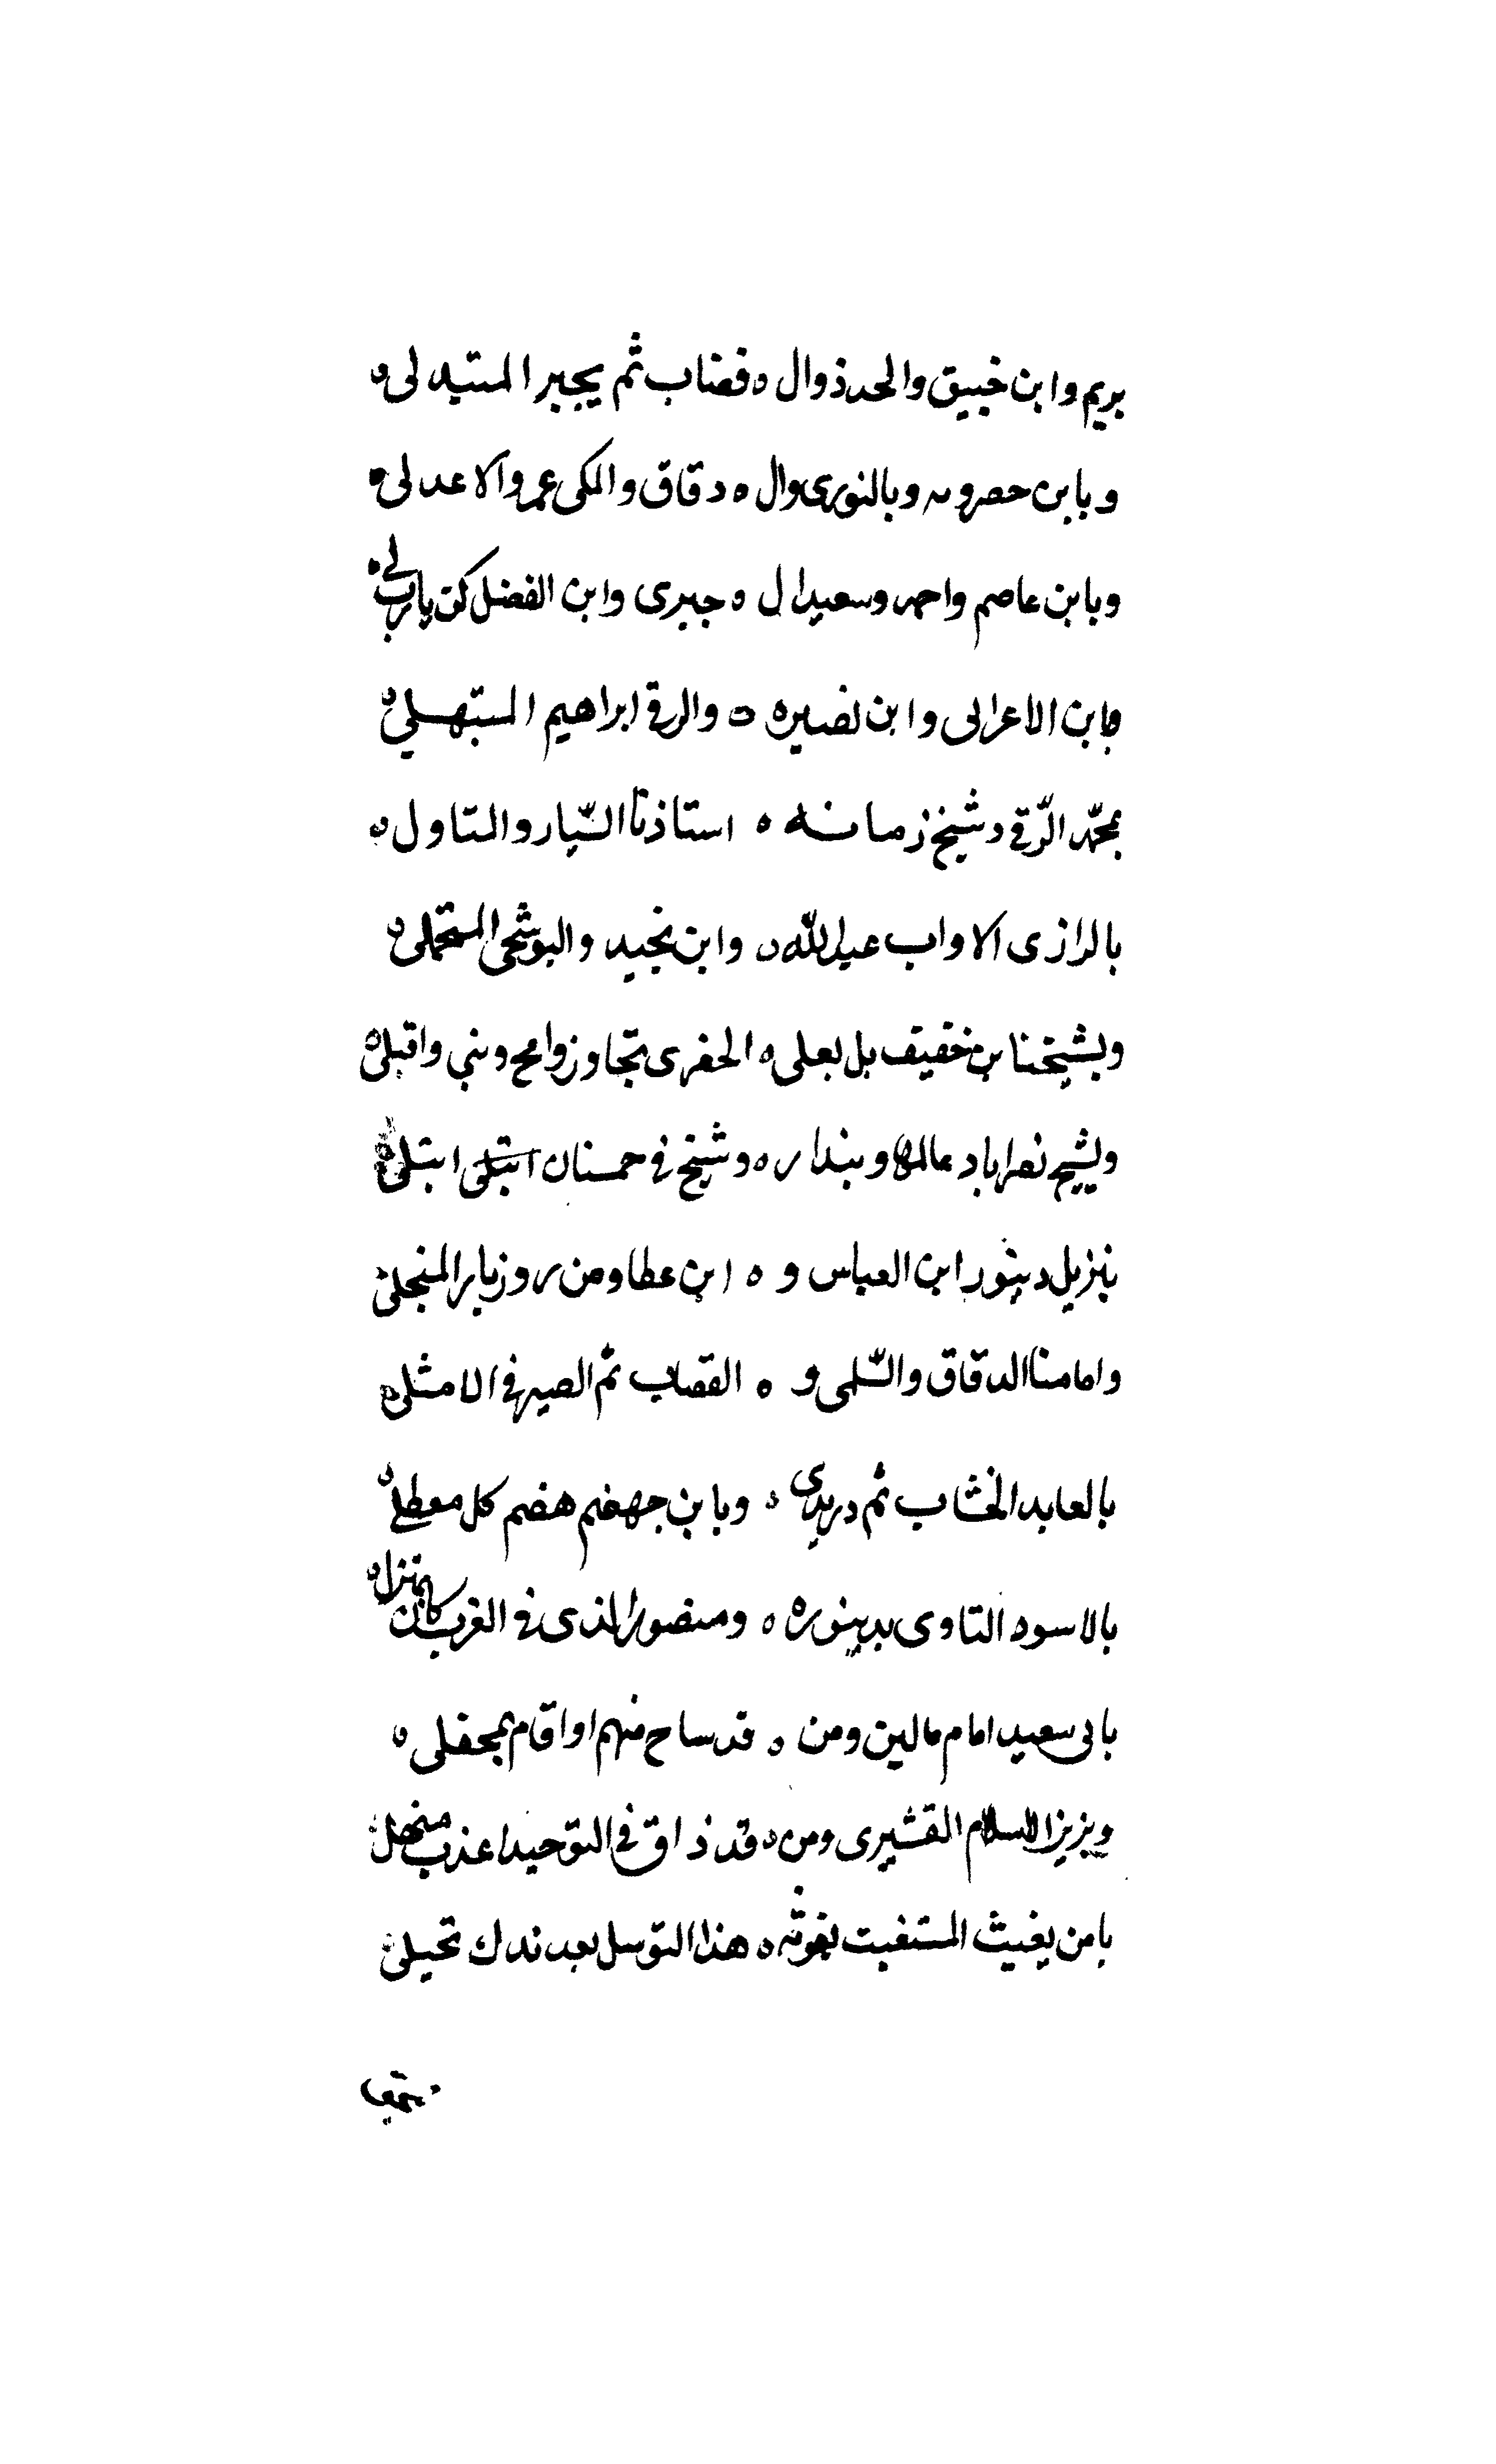 بريم وابن خبيق والحد ذوال ه قصاب ثم بجبر المستبدلى ه
وبابن حصرويه وبالنورى وال ه دقاق والمكى عمرو الاعدلى ه
وبابن عاصم واحمد وسعيد ال ه جيرى وابن الفضل كن يارب لى ه
وبابن الاعرابى وابن نصيره ه والرقى ابراهيم المستبهلى ه
بمحمد الرّقى وشيخ زمانه ه استاذنا السّيار والمتاول ه
بالرازى الاواب عبد الله ه وابن نجيد والبوشحى المتحملى ه
وبشيخنا بن خفيف بل بعلى ه الحفرى تجاوز وامح ذنبي واقبلى ه
وبشيخ نصراباد عالمها وبندار ه وشيخ فى حمسنان ابتلى ه
بنزيل دينور ابن العباس و ه ابن عطا ومن روزبار المنجلى ه
وامامنا الدقاق والسّلمى و ه القصاب ثم الصيرفى الامثلى ه
بالعابد الخشاب ثم دريدى ه وبابن جهضم هضم كل معطلى ه
بالاسود الثاوى بدينوره ه ومنصور الذى فى الغرب كان بمنزل ه
بابى سعيد امام مالين ومن ه قد ساح منهم او اقام بمحفلى ه
وبزين الاسلام القشيرى ومن ه قد ذاق فى التوحيد اعذب منهل ه
يا من يغيث المستغيث بغوثه ه هذا التوسل بعد ذلك تحيلى ه